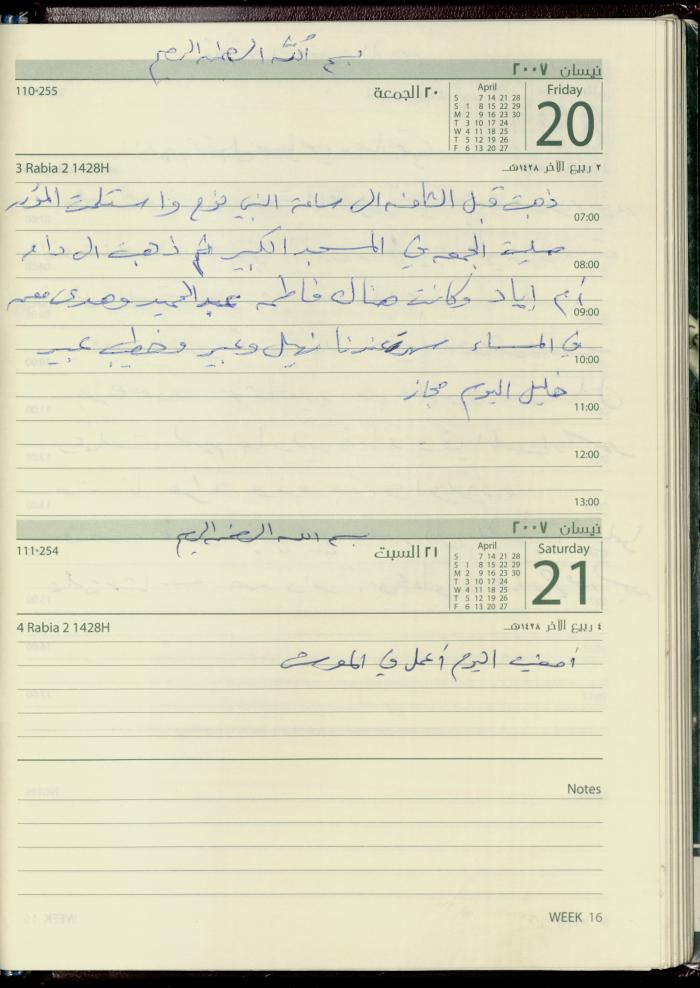 بسم الله الرحمن الرحيم
نيسان ٢٠٠٧
110-255
٢٠ الجمعة
April
S 7 14 21 28
S 1 8 15 22 29
M 2 9 16 23 30
T 3 10 17 24
W 4 11 18 25
T 5 12 19 26
F 6 13 20 27
Friday
20
3 Rabia 2 1428H
٢ ربيع الآخر ١٤٢٨هـ
ذهبت قبل الثامنه الى ساحة النبي واستلمت
07:00
صليت الجمعه في المسجد الكبير ثم ذهبت الى دار
08:00
أم إياد وكانت هناك فاطمه عبدالحميد وهدى معهم
09:00
في المساء سهرة عندنا نهيل وعبير وخطيب عبير
10:00
خليل اليوم مجاز
11:00
12:00
13:00
نيسان ٢٠٠٧
بسم الله الرحمن الرحيم
111-254
٢١ السبت
April
S 7 14 21 28
S 1 8 15 22 29
M 2 9 16 23 30
T 3 10 17 24
W 4 11 18 25
T 5 12 19 26
F 6 13 20 27
Saturday
21
4 Rabia 2 1428H
٤ ربيع الآخر ١٤٢٨هـ
أمضيت اليوم أعمل في
Notes
WEEK 16